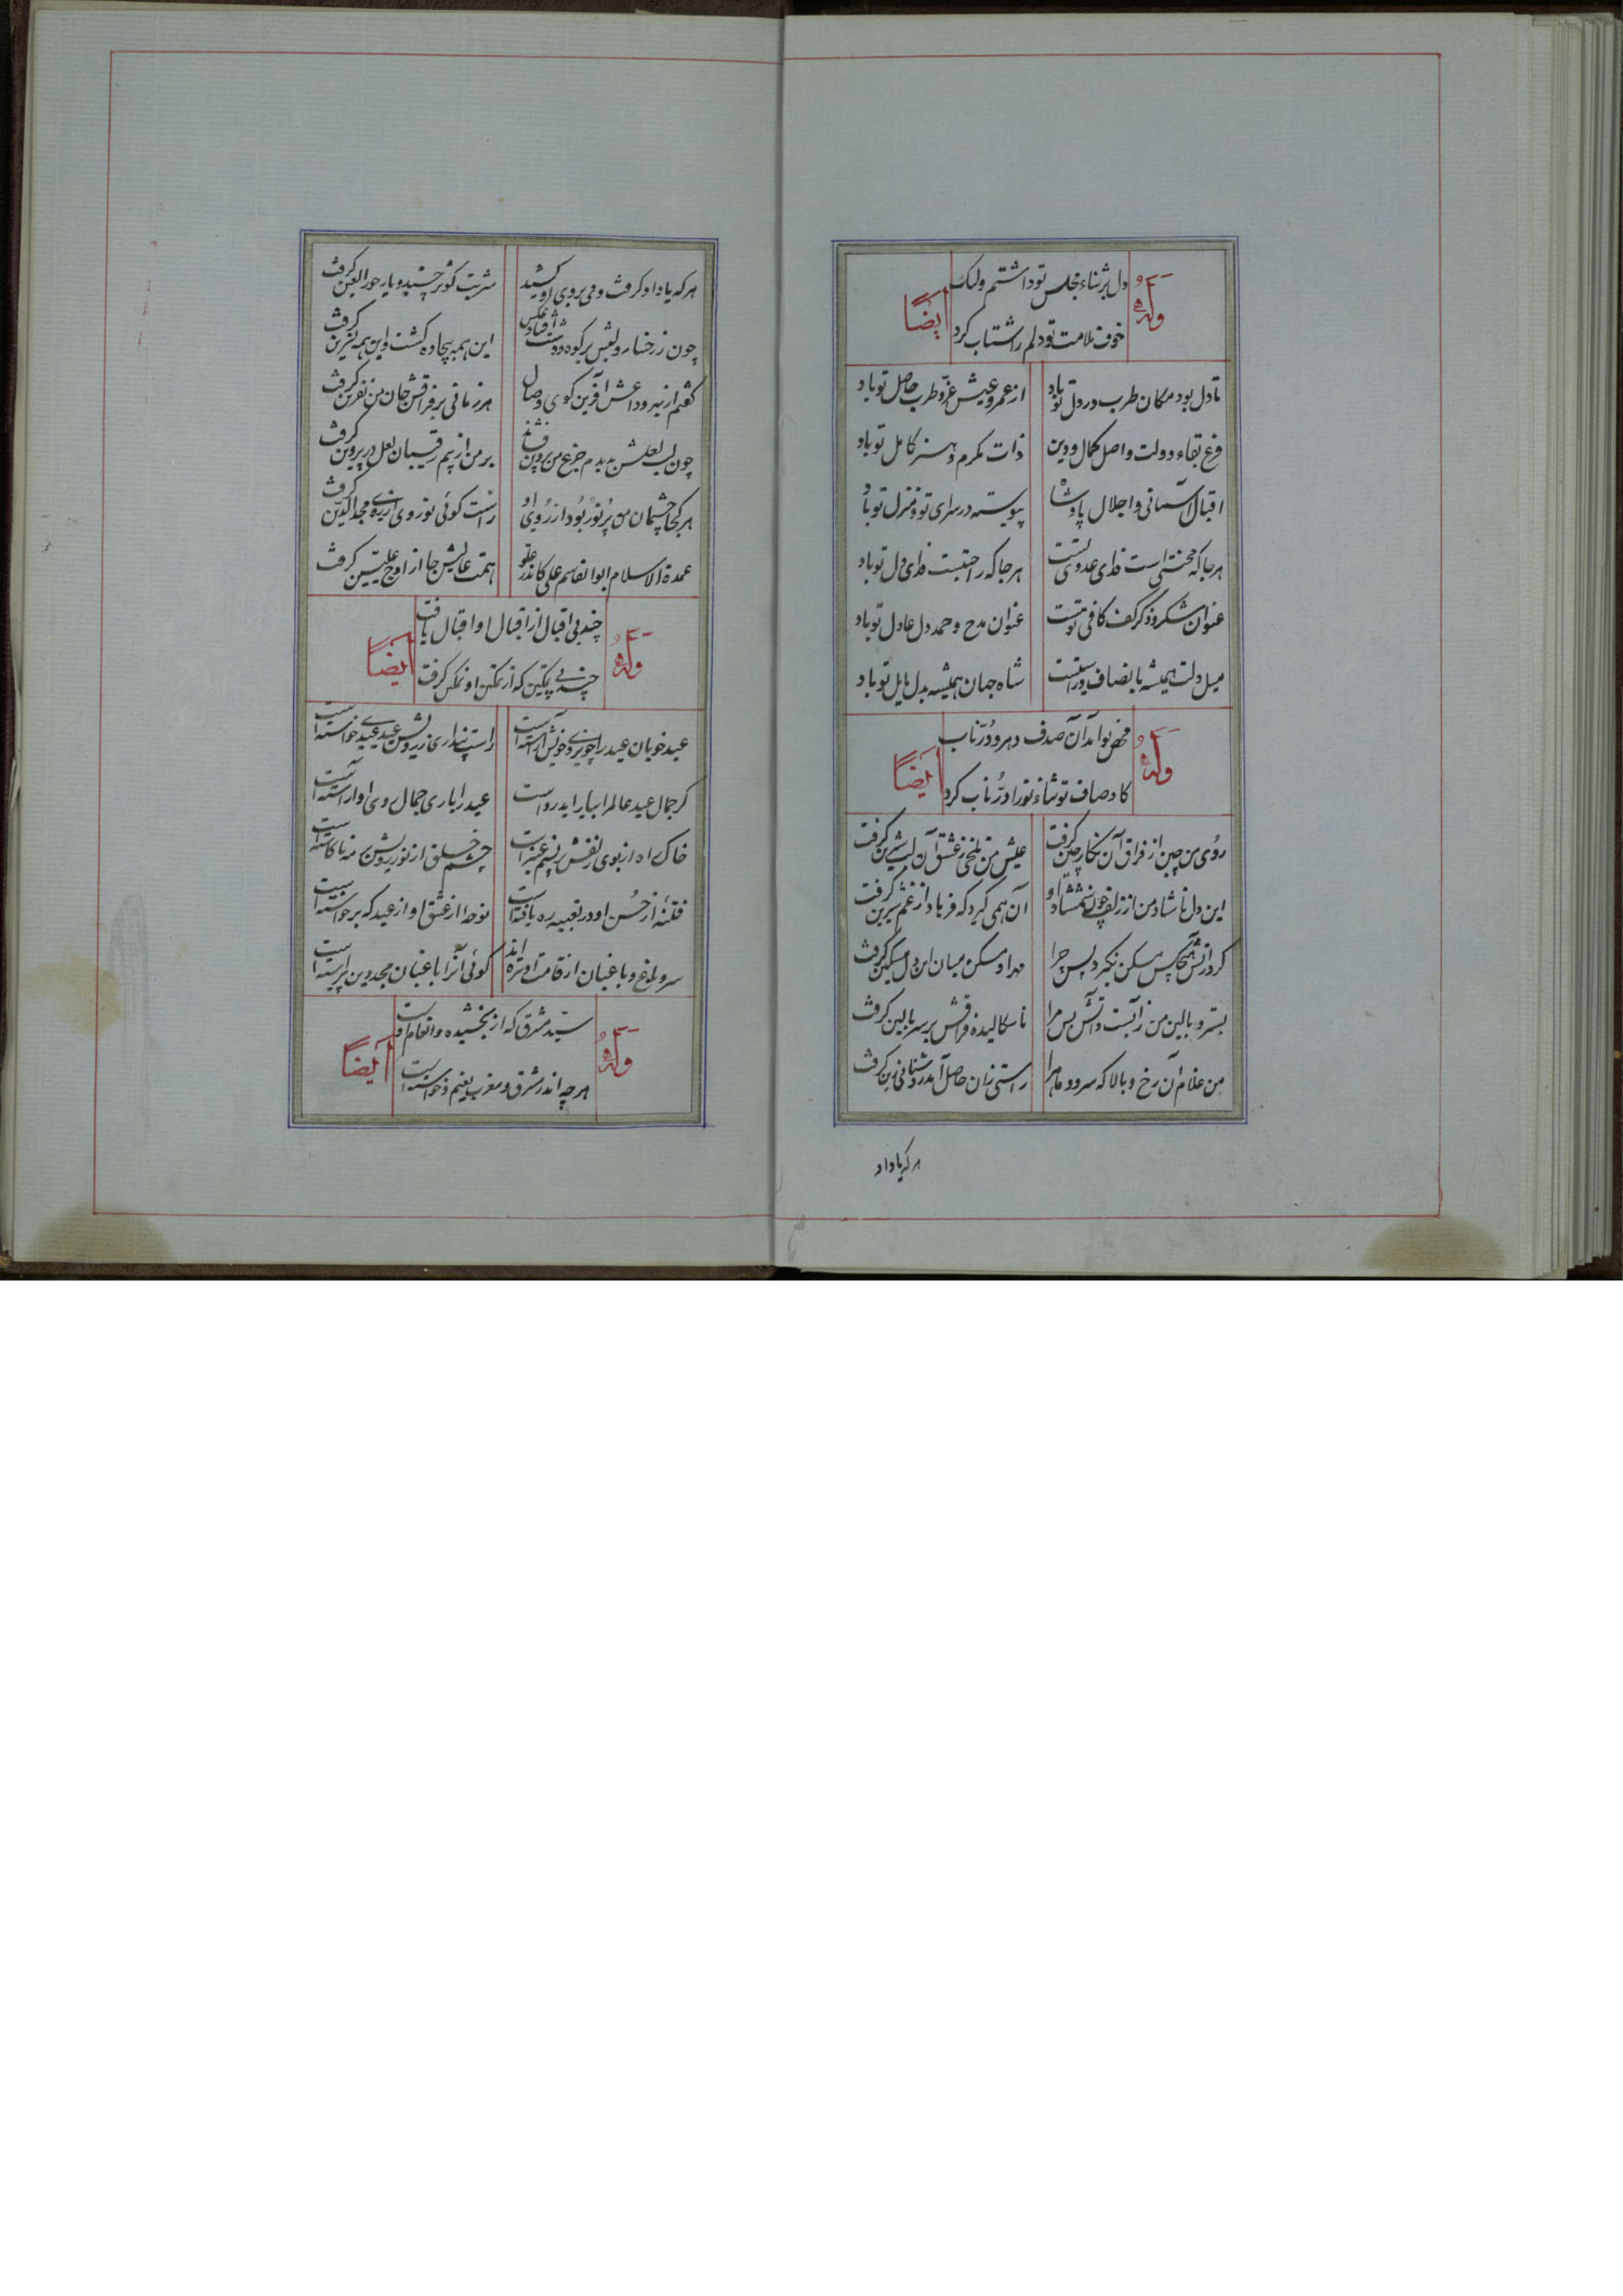 دل بر ثناء مجلس تو داشتم ولیک
وله ایضاً
خوف ملامت تو دلم را شتاب کرد
تا دل بود مکان طرب در دل تو باد از عمر و عیش عز و طرب حاصل تو باد
فرع بقاء دولت و اصل کمال و دین ذات مکرم و هنر کامل تو باد
اقبال آسمانی و اجلال پادشاه پیوسته در سرای تو و منزل تو باد
هر جا که محنتی است فدای عدوی تست هر جا که راحتیست فدای دل تو باد
عنوان شکر و ذکر کف کافی توست عنوان مدح و حمد دل عادل تو باد
میل دلت همیشه بانصاف و راستیست شاه جهان همیشه بدل مایل تو باد
آن صدف دهر و در ناب
وله ایضاً
کاوصاف تو ثناء تو را در ناب کرد
روی من چین از فراق آن نگار چین گرفت عیش من تلخی ز عشق آن لب شیرین گرفت
این دل ناشاد من از زلف چون شمشاد او آن همی گیرد که فرهاد از غم شیرین گرفت
گر در آتش هیچکس مسکن نگیرد پس چرا مهر او مسکن میان این دل مسکین گرفت
بستر و بالین من ز آبست و آتش بس مرا تا سکالیده فراقش بر سر بالین گرفت
من غلام آن رخ و بالا که سرو و ماه را راستی زان حاصل آمد روشنائی زین گرفت
هر که یاد او
هر که یاد او گرفت و می بروی او کشید شربت کوثر چشید و یار حور العین گرفت
چون ز رخسار و لبش بر کوه و دشت افتاد عکس این همه بیجاده گشت و این همه نسرین گرفت
گفتم از بیرود اعش آفرین گوی وصال هر زمانی بر فراقش جان من نفرین گرفت
چون لب لعلش بدیدم جزع من پروین فشاند بر من از بیم رقیبان لعل در پروین گرفت
هر کجا چشمان من پر نور بود از روی او راست گوئی نور روی از مجد الدین گرفت
عمدة الاسلام ابوالقاسم علی کاندر علو همت عالیش جا از اوج علیین گرفت
چند بی اقبال از اقبال او اقبال یافت
وله ایضاً
چند بی تمکین که از تمکین او تمکین گرفت
عید خوبان عید را چو روی خویش آراسته است راست پنداری ز رویش عید عیدی خواسته است
گر جمال عید عالم را بیاراید رواست عید را باری جمال روی او آراسته است
خاک راه از بوی زلفش پر نسیم عنبر است چشم خلق از نور رویش پر مه ناکاسته است
فتنهٔ از حسن او در تعبیه ره یافته است نوحهٔ از عشق او از عیدگه برخواسته است
سرو باغ و باغبان از قامت او تره اند گوئی آنرا باغبان مجد دین پیراسته است
سید مشرق که از بخشیده و انعام اوست
وله ایضاً
هر چه اندر مشرق و مغرب نعیم و خواسته است